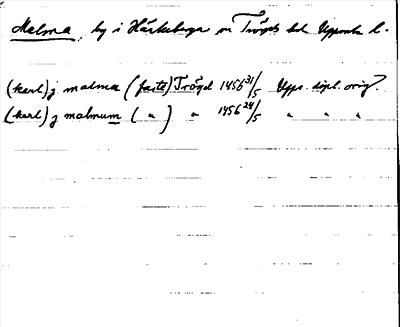 Malma, by i Härkeberga sn Trögds hd Uppsala l.
(karl) j malma (faste) Trögd 1456 31/5 Upps. dipl. orig?
(karl) j malmum ( " ) " 1456 24/5 " " "